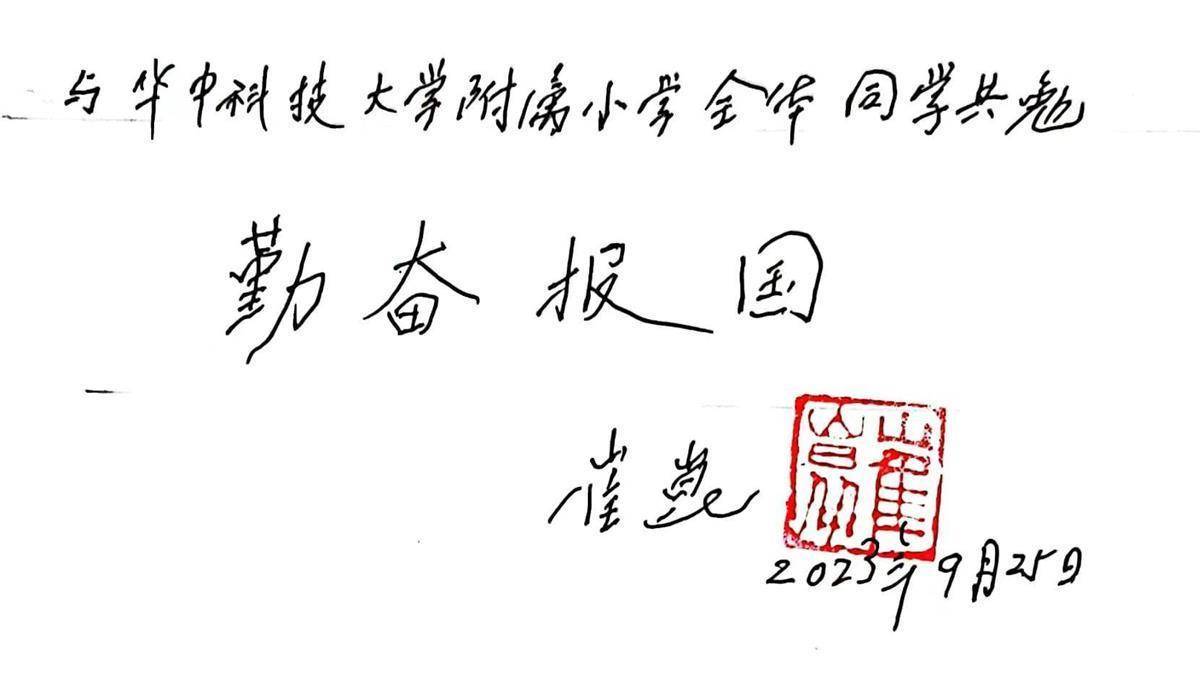 与华中科技大学附属小学全体同学共勉
勤奋报国
崔崑
崔崑
2023年9月25日